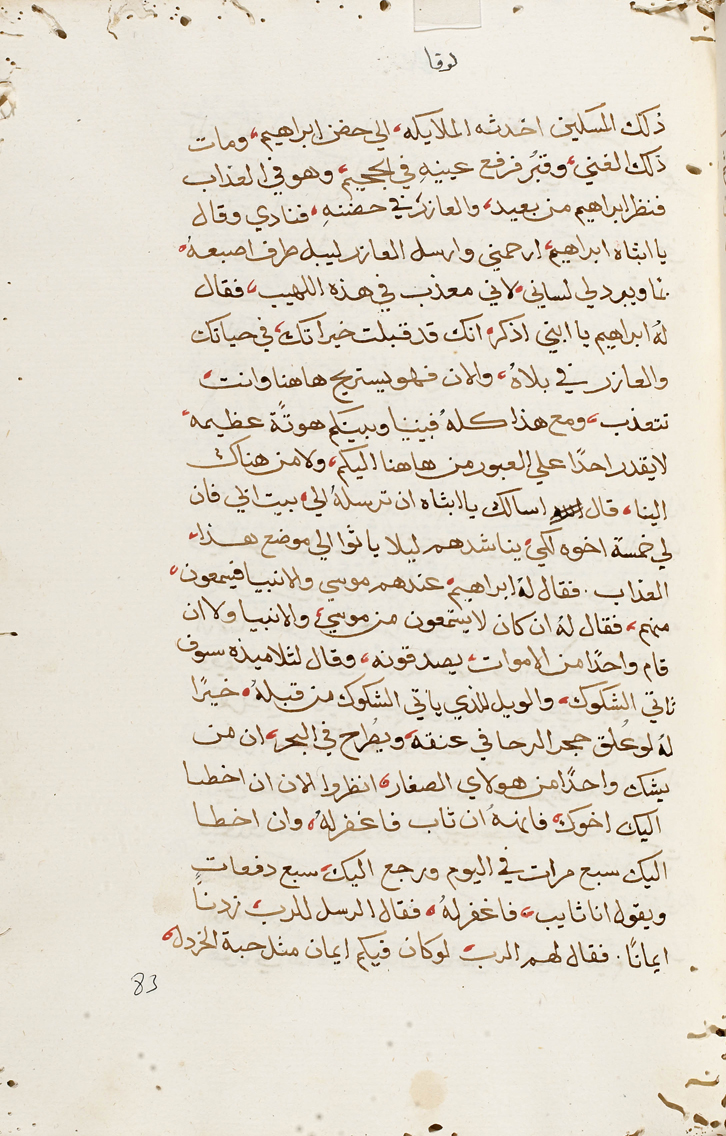 لوقا
ذلك المسكين اخدثه الملايكه، الي حضن ابراهيم، ومات
ذلك الغني، وقبُر فرفع عينيهِ في الجحيم، وهو في العذاب
فنظر ابراهيم من بعيد، والعازر في حضنهِ، فنادي وقال
يا ابثاه ابراهيم، ارحمني وارسل العازر ليبل طرف اصبعهُ
بما ويبرد لي لساني، لاني معذب في هذه اللهيب، فقال
لهُ ابراهيم يا ابني اذكر، انك قد قبلت خيراتك، في حياتك
والعازر في بلاهُ، والان فهو يستريح هاهنا وانت،
تتعذب، ومع هذا كلهُ فبيننا وبينكم هوتًة عظيمه،
لايقدر احدًا علي العبور من هاهنا اليكم، ولا من هناك
الينا، قال اسالك يا ابثاه ان ترسلهُ الي، بيت ابي فان
لي خمسة اخوه لكي، يناشدهم ليلا ياثوا الي موضع هذا،
العذاب. فقال لهُ ابراهيم، عندهم موسي والانبيا فيسمعون،
منهم، فقال لهُ ان كان لايسمعون من موسي، والانبيا ولا ان
قام واحدًا من الاموات، يصدقونه، وقال لثلاميذه سوف
ثاتي الشكوك، والويل للذي ياتي الشكوك من قبلهُ، خيرًا
لهُ لو عُلق حجر الرحا في عنقه، ويطُراح في البحر، ان من
يشك واحدًا من هولاي الصغار، انظروا الان ان اخطا
اليك اخوك، فانههُ ان ثاب فاغفر لهُ، وان اخطا
اليك سبع مرات في اليوم ويرجع اليك، سبع دفعات
ويقول انا ثايب، فاغفر لهُ، فقال الرسل للرب، زدناً
ايمانًا. فقال لهم الرب، لو كان فيكم ايمان مثل حبة الخردل،
83